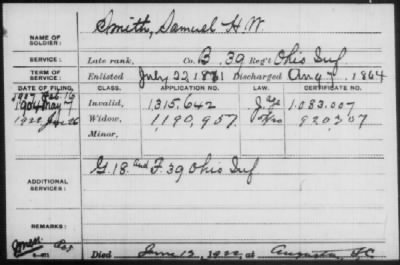 NAME OF SOLDIER: Smith, Samuel H. W.
SERVICE: Late rank, Co. B. 39 Reg't Ohio Inf
TERM OF SERVICE: Enlisted July 22, 1861 Discharged Aug 7, 1864
DATE OF FILING. CLASS. APPLICATION NO. LAW. CERTIFICATE NO.
1907 Feb. 16
1904 May 7 Invalid, 1,315,642 1,083,007
1922 Widow, 1,190,957 920,307
Minor,
ADDITIONAL SERVICES: G. 18. and F. 39 Ohio Inf
REMARKS:
Died June 12, 1922, at Augusta,